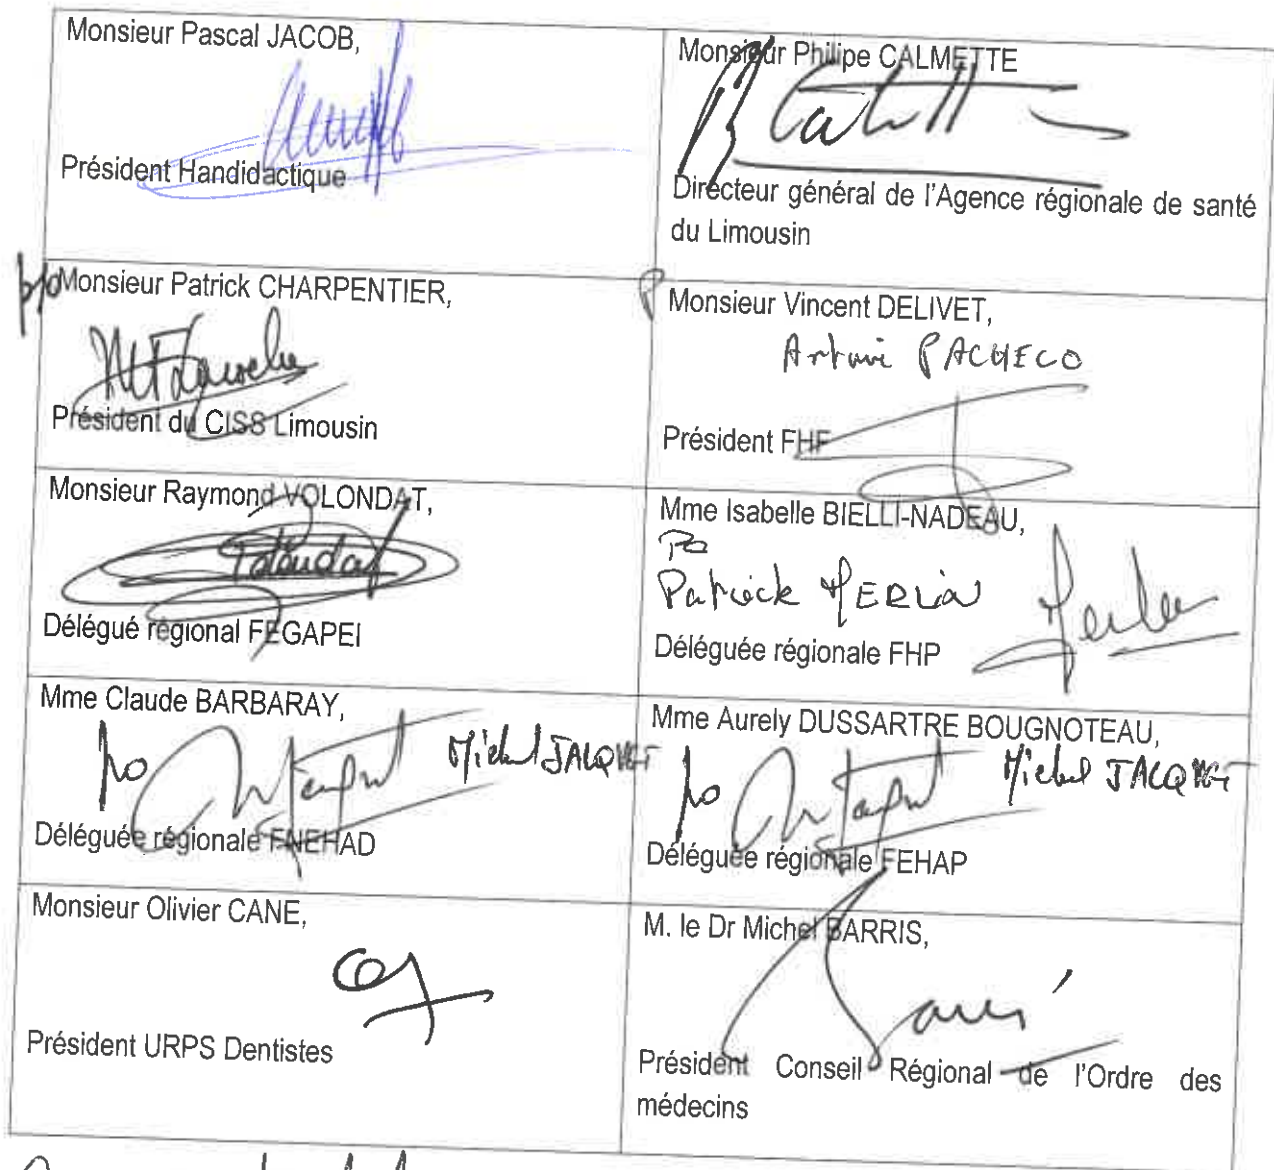 Monsieur Pascal JACOB,
Président Handidactique
Monsieur Philipe CALMETTE
Directeur général de l'Agence régionale de santé
du Limousin
p/o Monsieur Patrick CHARPENTIER,
Président du CISS Limousin
P Monsieur Vincent DELIVET,
PACHECO
Président FHF
Monsieur Raymond VOLONDAT,
Volondat
Délégué régional FEGAPEI
Mme Isabelle BIELLI-NADEAU,
Po
Patrick MERLIN
Déléguée régionale FHP
Mme Claude BARBARAY,
po Michel JACQUET
Déléguée régionale FNEHAD
Mme Aurely DUSSARTRE BOUGNOTEAU,
po Michel JACQUET
Déléguée régionale FEHAP
Monsieur Olivier CANE,
Président URPS Dentistes
M. le Dr Michel BARRIS,
Président Conseil Régional de l'Ordre des
médecins